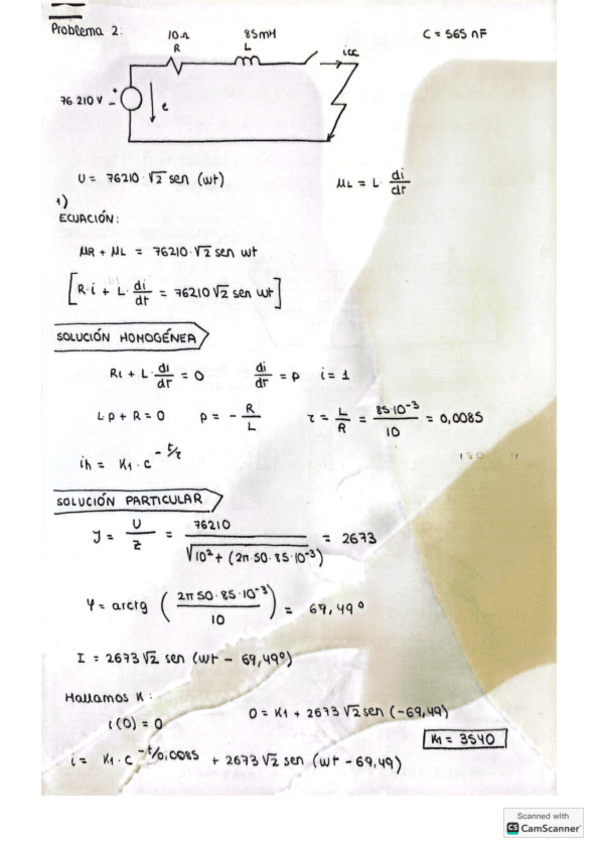 Problema 2:
10Ω
R
85mH
L
icc
C = 565 nF
76 210 V
+
-
e
U = 76210·√2 sen (wt)
μL = L· di/dt
1)
ECUACIÓN:
μR + μL = 76210·√2 sen wt
[R·i + L·di/dt = 76210√2 sen wt]
SOLUCIÓN HOMOGÉNEA
Ri + L·di/dt = 0 di/dt = p i = 1
L·p + R = 0 p = - R/L τ = L/R = 85·10⁻³/10 = 0,0085
ih = K1 · e^(-t/τ)
SOLUCIÓN PARTICULAR
J = U/Z = 76210/√(10² + (2π·50·85·10⁻³)) = 2673
φ = arctg (2π50·85·10⁻³/10) = 69,49º
I = 2673√2 sen (wt - 69,49º)
Hallamos K:
i(0) = 0 0 = K1 + 2673√2 sen (-69,49)
K1 = 3540
i = K1·e^(-t/0,0085) + 2673√2 sen (wt - 69,49)
Scanned with
CS CamScanner